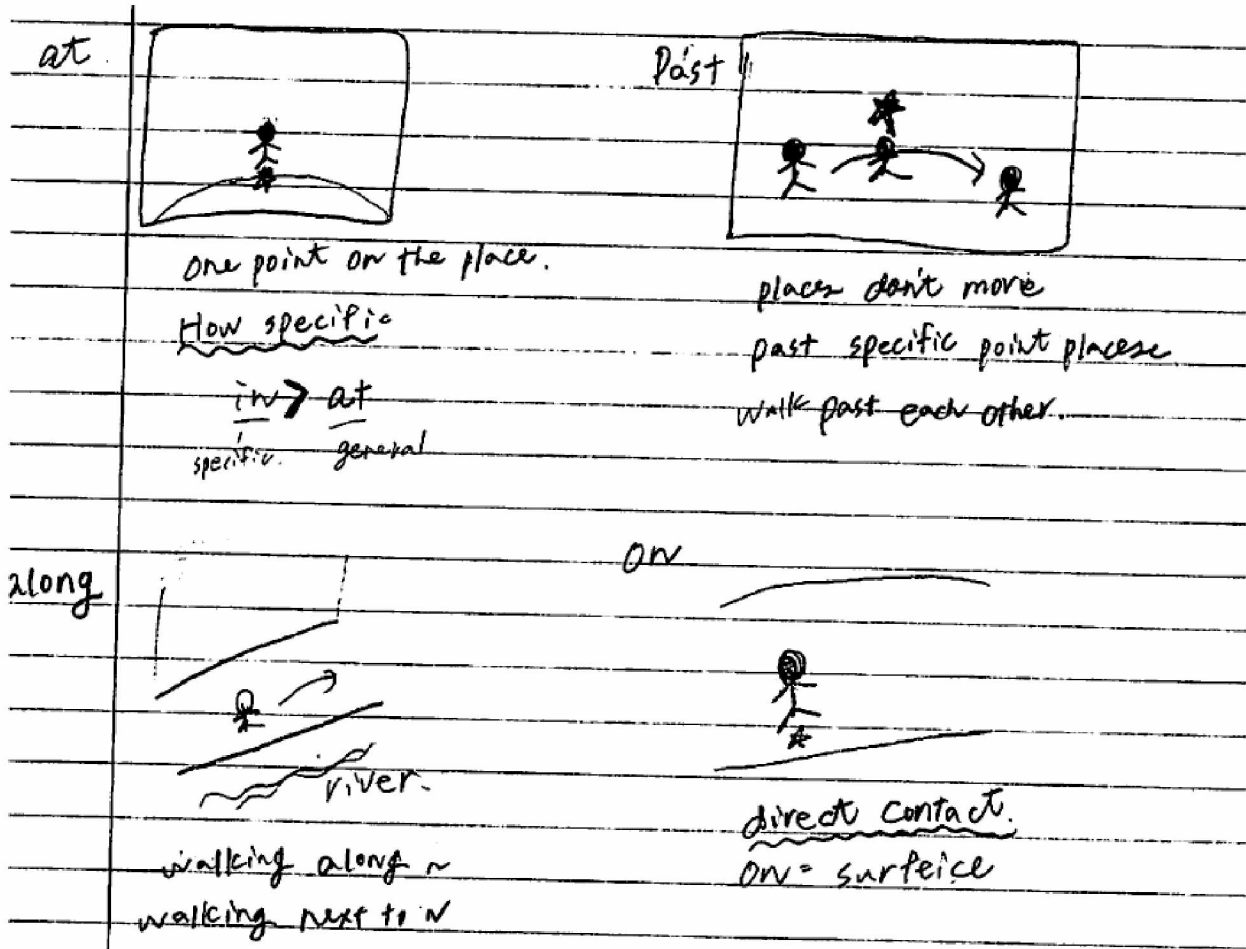 at
one point on the place.
How specific
in > at
specific. general
Past
places don't move
past specific point places
walk past each other.
along
river.
walking along ~
walking next to ~
on
direct contact.
on = surfeice